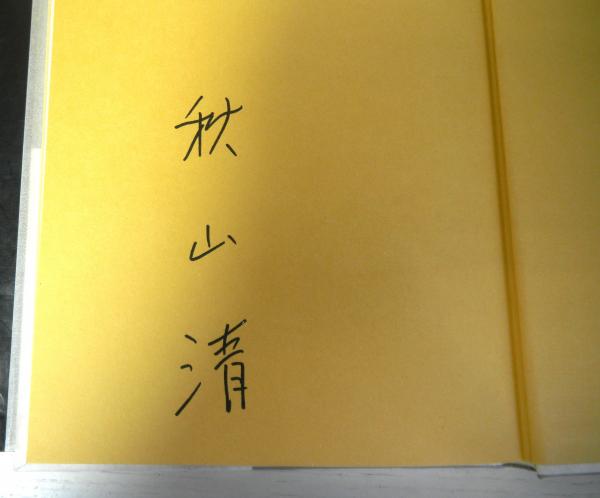 秋山清